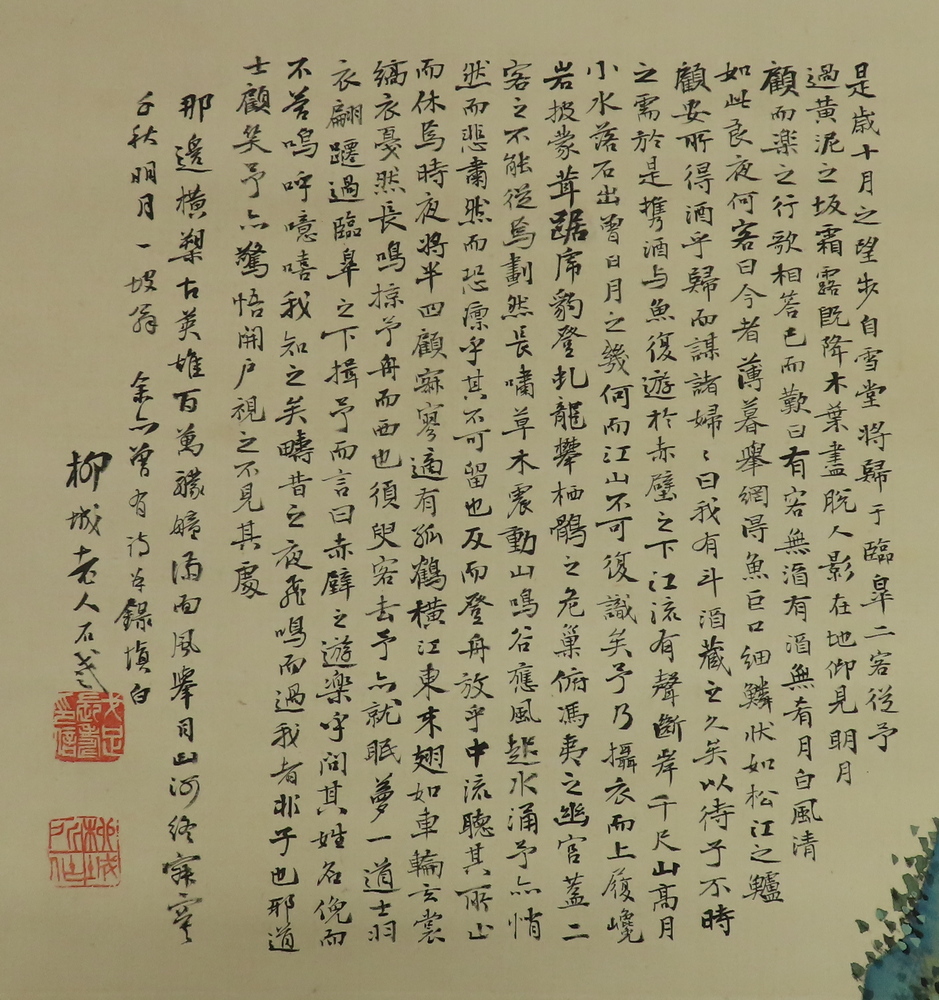 是歲十月之望步自雪堂將歸于臨皋二客從予
過黃泥之坂霜露既降木葉盡脫人影在地仰見明月
顧而樂之行歌相答已而歎曰有客無酒有酒無肴月白風清
如此良夜何客曰今者薄暮舉網得魚巨口細鱗狀如松江之鱸
顧安所得酒乎歸而謀諸婦〻曰我有斗酒藏之久矣以待子不時
之需於是攜酒与魚復遊於赤壁之下江流有聲斷岸千尺山高月
小水落石出曾日月之幾何而江山不可復識矣予乃攝衣而上履巉
岩披蒙茸踞虎豹登虬龍攀栖鶻之危巢俯馮夷之幽宮蓋二
客之不能從焉劃然長嘯草木震動山鳴谷應風起水涌予亦悄
然而悲肅然而恐凛乎其不可留也反而登舟放乎中流聽其所止
而休焉時夜將半四顧寂寥適有孤鶴橫江東來翅如車輪玄裳
縞衣戛然長鳴掠予舟而西也須臾客去予亦就眠夢一道士羽
衣翩躚過臨皋之下揖予而言曰赤壁之遊樂乎問其姓名俛而
不答嗚呼噫嘻我知之矣疇昔之夜飛鳴而過我者非子也邪道
士顧笑予亦驚悟開戶視之不見其處
那邊橫槊古英雄百萬艨艟滿面風舉目山河終寂寞
千秋明月一坡翁 余亦曾有詩並錄填白
柳城老人石戈